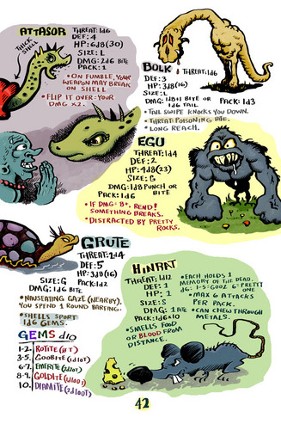 ATTASOR
THICK
SHELL
THREAT: 1d6
DEF: 4
HP: 6d8(30)
SIZE: L
DMG: 2d6 BITE
PACK: 1
• ON FUMBLE, YOUR
WEAPON MAY BREAK
ON SHELL
• FLIP IT OVER: YOUR
DMG x2.
BOLK
THREAT: 1d6
DEF: 3
HP: 3d8(16)
SIZE: L
DMG: 1d4+1 BITE OR
1d6 TAIL
PACK: 1d3
• TAIL SWIPE KNOCKS YOU DOWN.
• THREAT: POISONING
• LONG REACH.
EGU
THREAT: 1d4
DEF: 2
HP: 4d8(23)
SIZE: G
DMG: 1d8 PUNCH OR
BITE
PACK: 1d6
• IF DMG=8+, REND!
SOMETHING BREAKS.
• DISTRACTED BY PRETTY
ROCKS.
GRUTE
THREAT: 1d4
DEF: 5
HP: 3d8(16)
SIZE: G
DMG: 1d6 BITE
• NAUSEATING GAZE (NEARBY).
YOU SPEND 1 ROUND BARFING.
• SHELLS SPORT
1d6 GEMS.
GEMS d10
1-2. ROTITE
3-5. GOOBITE
6-7. EMERITE
8-9. GOLDITE
10. DIAMITE
HINRAT
THREAT: 1d12
DEF: 1
HP: 1
SIZE: S
DMG: 1
PACK: 1d6x10
• SMELLS FOOD
OR BLOOD FROM
DISTANCE.
• EACH HOLDS 1
MEMORY OF THE DEAD.
d6: 1-5: GOOZ, 6: PRETTY
ONE
• MAX 6 ATTACKS
PER PACK.
• CAN CHEW THROUGH
METALS.
42